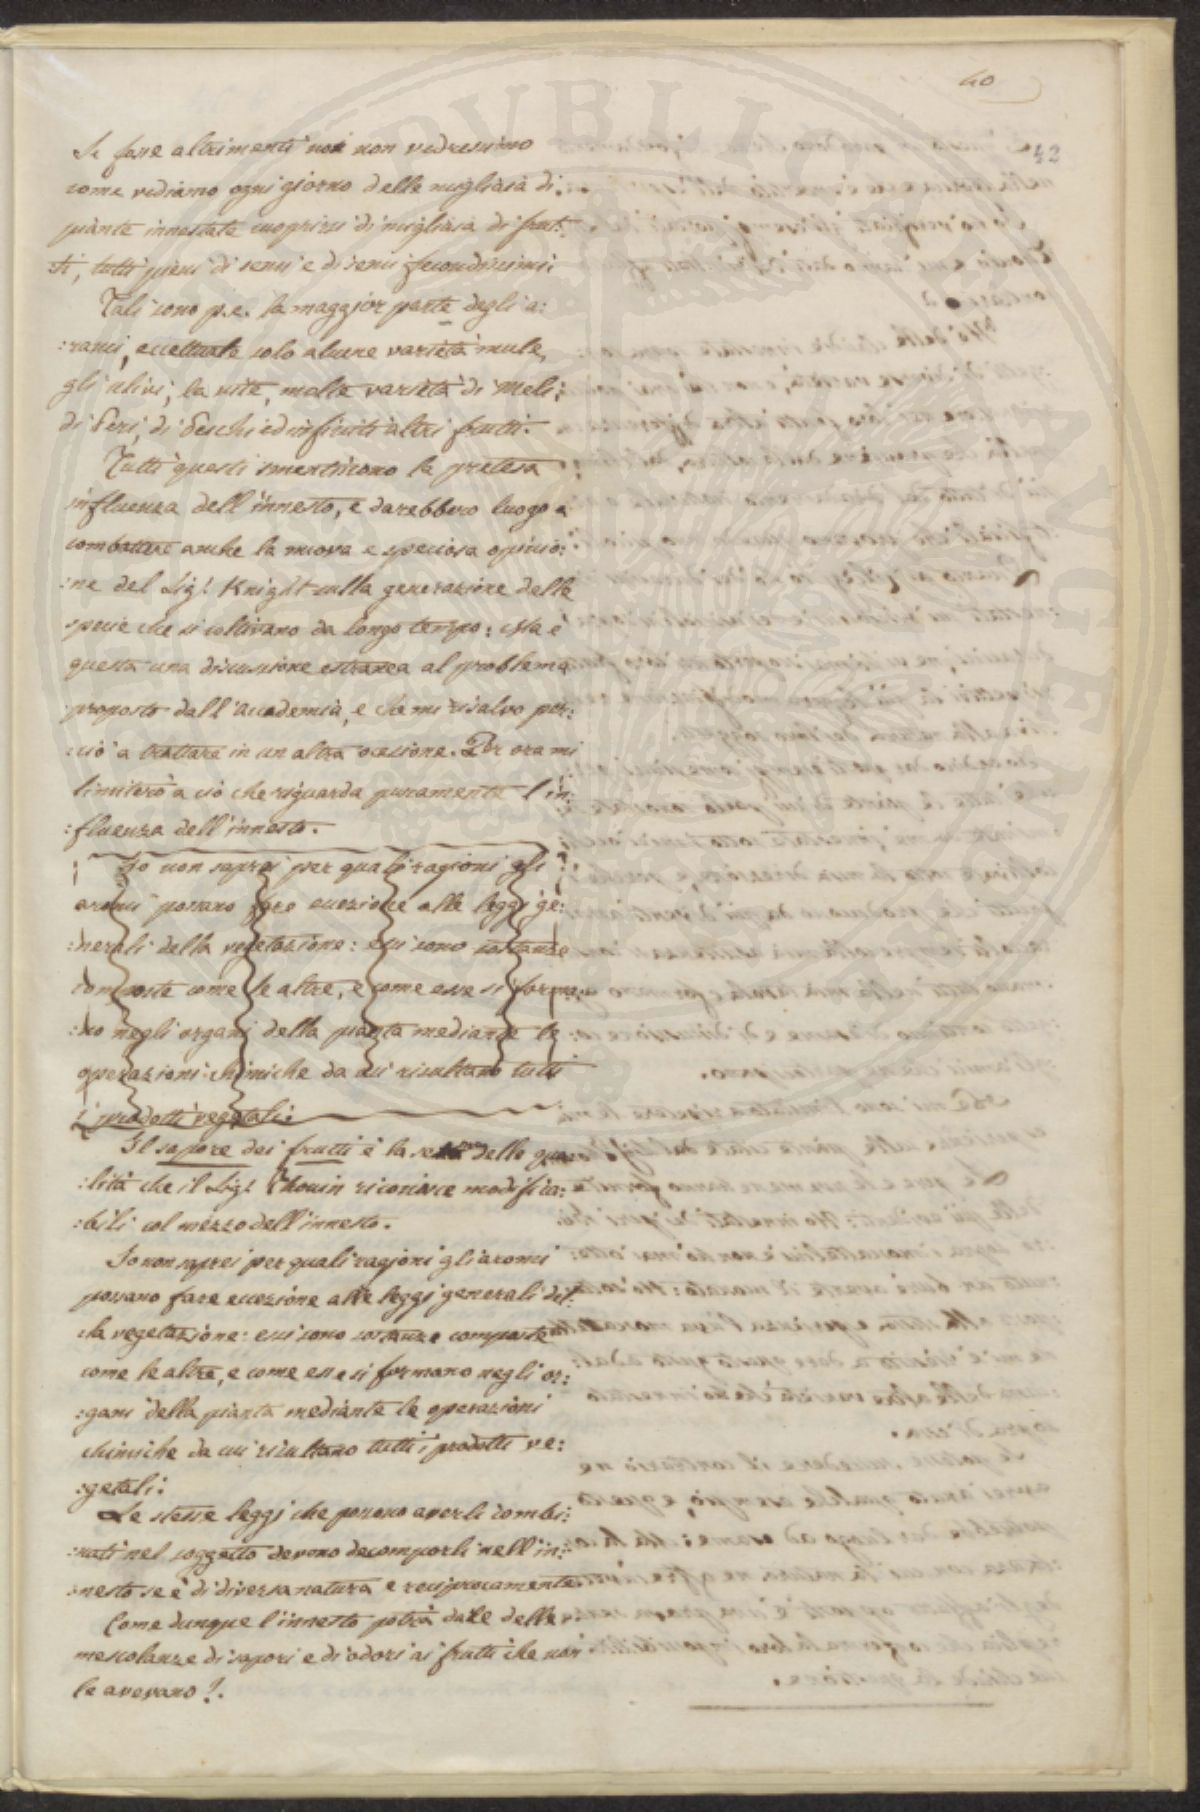 40
42
Se fosse altrimenti noi non vedressimo
come vediamo ogni giorno delle migliaia di
piante innestate cuoprirsi di migliaia di frut:
:ti, tutti pieni di semi e di semi fecondissimi:
Tali sono p.e. la maggior parte degli a:
:ranci, eccettuate solo alcune varietà mule,
gli ulivi, la vite, molte varietà di Meli,
di Peri, di Peschi ed infiniti altri frutti.
Tutti questi smentiscono la pretesa
influenza dell'innesto, e darebbero luogo a
combattere anche la nuova e speciosa opinio:
:ne del Sig.r Knight sulla generazione delle
specie che si coltivano da longo tempo: Ma è
questa una discussione estranea al problema
proposto dall'accademia, e che mi risalvo per:
:ciò a trattare in un altra ocasione. Per ora mi
limiterò a ciò che riguarda puramente l'in:
:fluenza dell'innesto.
Io non saprei per quali ragioni gli
aromi possano fare eccezione alle leggi ge:
:nerali della vegetazione: essi sono sostanze
composte come le altre, e come esse si forma:
:no negli organi della pianta mediante le
operazioni chimiche da cui risultano tutti
i prodotti vegetali:
Il sapore dei frutti è la delle qua:
:lità che il Sig.r Thouin riconosce modifica:
:bili col mezzo dell'innesto.
Io non saprei per quali ragioni gli aromi
possano fare eccezione alle leggi generali del:
:la vegetazione: essi sono sostanze composte
come le altre, e come esse si formano negli or:
:gani della pianta mediante le operazioni
chimiche da cui risultano tutti i prodotti ve:
:getali:
Le stesse leggi che possono averli combi:
:nati nel soggetto devono decomporli nell'in:
:nesto se è di diversa natura e reciprocamente
Come dunque l'innesto potrà dare delle
mescolanze di sapori e di odori ai frutti che non
le avevano?.